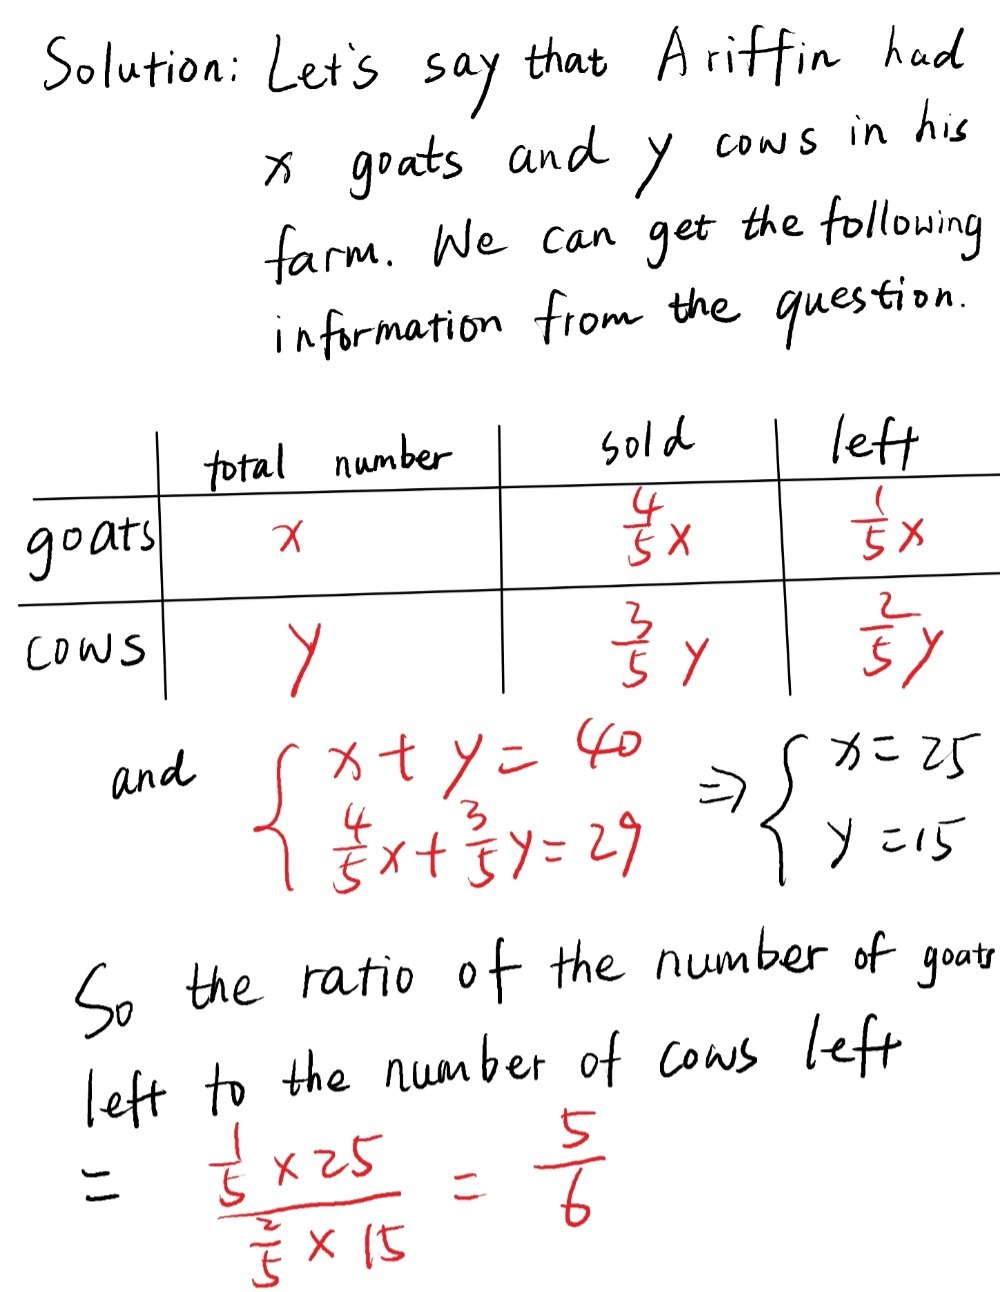 Solution: Let's say that Ariffin had
x goats and y cows in his
farm. We can get the following
information from the question.
total number sold left
goats x 4/5 x 1/5 x
cows y 3/5 y 2/5 y
and { x + y = 40 ⇒ { x = 25
4/5 x + 3/5 y = 29 y = 15
So the ratio of the number of goats
left to the number of cows left
= (1/5 × 25)/(2/5 × 15) = 5/6